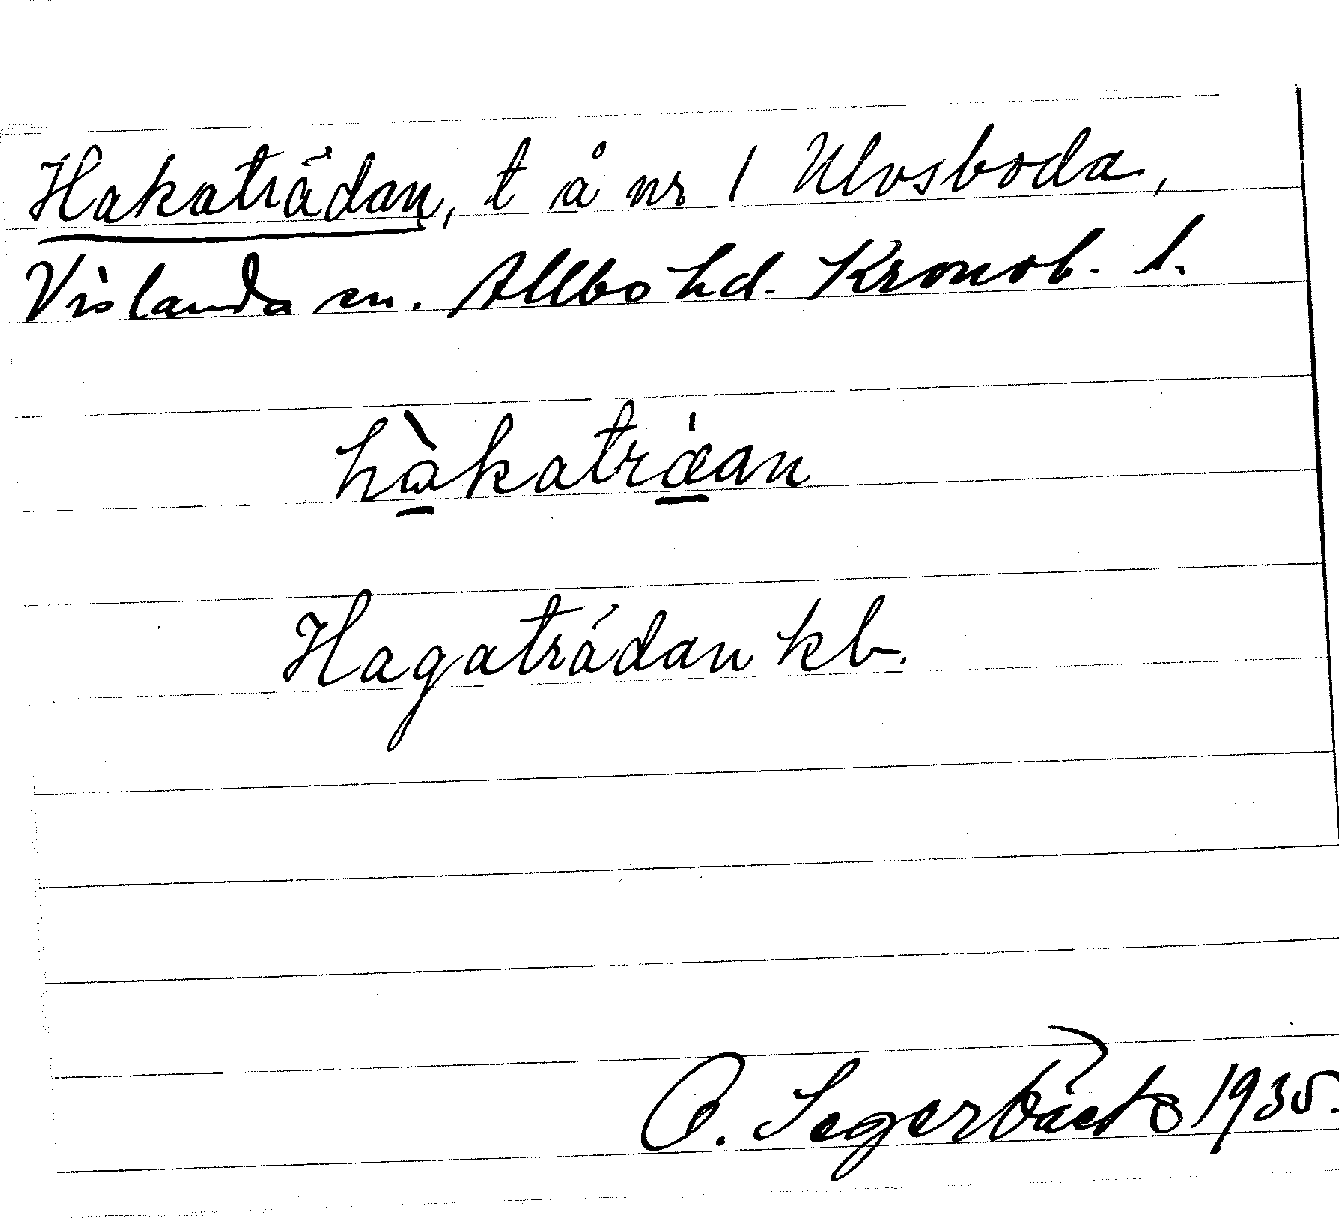 Hakaträdan, t å nr 1 Ulvsboda,
Vislanda sn. Allbo hd. Kronob. l.
hàkatræ̍an
Hagatrádan kb.
O. Segerbäck 1935.